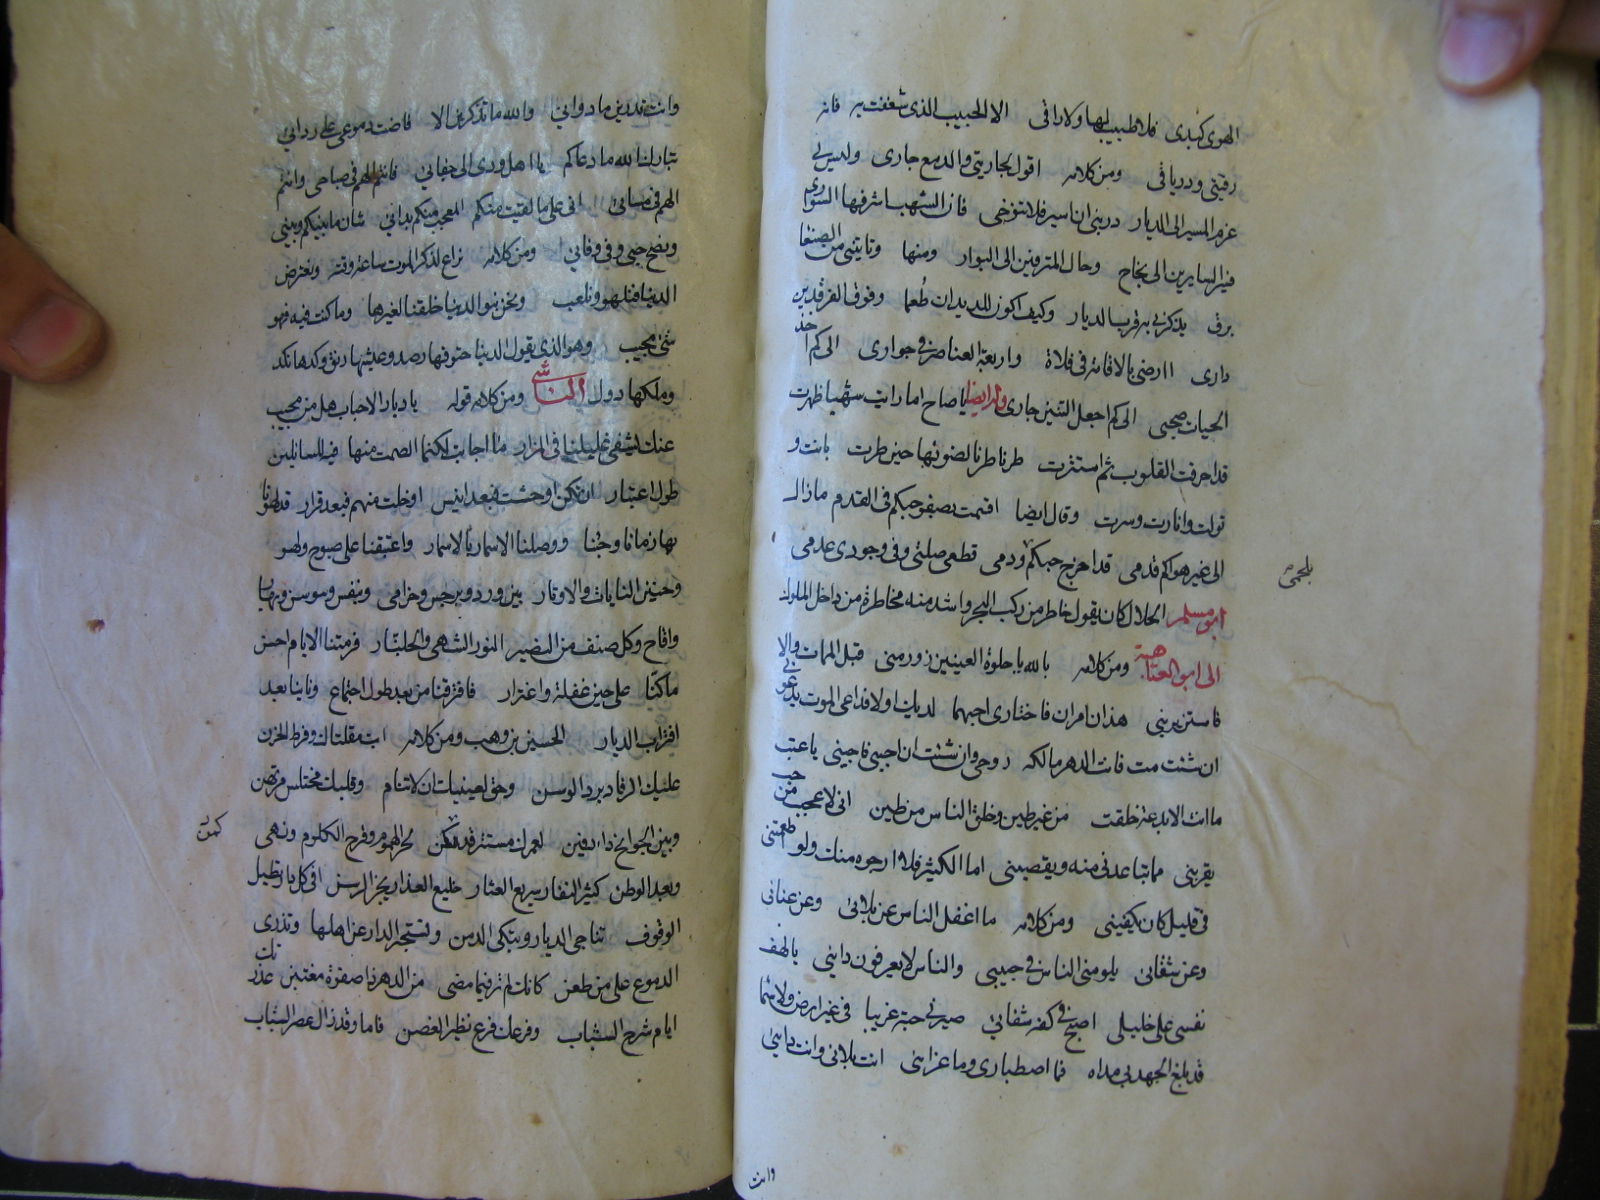 الهوى كبدى فلا طبيب لها ولا راقى الا الحبيب الذى شغفت به فانه
رقيتى ودرياقى ومن كلامه اقول لجارتى والدمع جارى ولى
عزم المسير الى الديار درينى ان اسير فلا تنوحى فان الشهب اشرفها السوارى
فيز السايرين الى بخاح وحال المترفين الى البوار ومنها وتايتنى من الصنعا
برق يذكرنى به قرب الديار وكيف اكون للديدان طعما وفوق الفرقدين
دارى اارضى بالاقامه فى فلاة واربعة العناصر فى جوارى الى كم اخذ
الحيات صحبى الى كم اجعل التنين جارى وله ايضا يا صاح اما رايت شهبا ظهرت
قد احرقت القلوب ثم استترت طرنا طربا لضونها حين طرت بانت و
تولت وانارت وسرت وقال ايضا اقسمت بصفو حبكم فى القدم ما زال
الى غير هواكم قدمى قد امزج حبكم ودمى قطعى صلتى وفى وجودى عدمى
بلحمى
ابو مسلم الحلال كان يقول خاطر من ركب البحر واشد منه مخاطرة من داخل الملوك
الى ابو العتاهية ومن كلامه بالله يا حلوة العينين زورينى قبل الممات والا
فاستزيرينى هذان امران فاختارى احبهما لديك اولا فداعى الموت يدعونى
ان شئت مت فانت الدهر مالكه روحى وان شئت ان احيى فاحيينى يا عتب
ما انت الا بدعة خلقت من غير طين وخلق الناس من طين انى لاعجب من حب
يقربنى مما تباعدنى منه ويقصينى اما الكثير فلا ارجوه منك ولو اطمعتنى
فى قليل كان يكفينى ومن كلامه ما اغفل الناس عن بلائى وعن عنائى
وعن شقائى يلومنى الناس فى حبيبى والناس لا يعرفون دائنى يا لهف
نفسى على خليلى اصبح فى كفه شفائى صيرنى حبه غريبا فى غير ارض ولا سما
قد بلغ الجهد بى مداه فما اصطبارى وما عزائى انت بلائى وانت دائى
وانت
وانت تدرين ما دوائى والله ما تذكرين الا فاضت دموعى على ردائى
تبارك الله ما دعاكم يا اهل ودى الى جفائى فانتم الهم فى صباحى وانتم
الهم فى مسائى انى على ما لقيت منكم المعجب منكم بدائى شان ما بينكم وبينى
ونصح حبى وفى وفائى ومن كلامه نراع لذكر الموت ساعة وقته ونعترض
الدنيا فنلهو ونلعب ونحن بنو الدنيا خلقنا لغيرها وما كنت فيه فهو
شئ محبب وهو الذى يقول الدنيا حتوفها رصد وعيشها رنق وكدها نكد
وملكها دول الناشى ومن كلامه قوله يا ديار الاحباب هل من مجيب
عنك يشفى غليلنا فى المزار ما اجابت لكنما الصمت منها فيه للسائلين
طول اعتبار ان تكن اوحشت فبعد انيس او خلت منهم فبعد قرار قد لهونا
بها زمانا وجنا ووصلنا الاسمار بالاسمار واعتبقنا على صبوح ولهو
وحنين النايات والاوتار بين ورد ونرجس وخزامى وبنفس وسوسن وبهار
واقاح وكل صنف من النضير النور الشهى والجلنار فرمتنا الايام احسن
ما كنا على حين غفلة واغترار فافترقنا من بعد طول اجتماع وناينا بعد
اقتراب الديار الحسين بن وهب ومن كلامه ابت مقلتاك وفرط الحزن
عليك الرقاد برد الوسن وحق لعينيك ان لا تنام وقلبك مختلس مرتهن
وبين الجوانح داء دفين لعمرك مستتر قد كمن
كمون
وبعد الوطن كثير النفار سريع العثار خليع العذار يجر الرسن افى كل دار تطيل
الوقوف تناجى الديار وتبكى الدمن وتستخبر الدار عن اهلها وتذرى
الدموع على من ظعن كانك لم تر فيما مضى من الدهر ذا صفوة مغتبن عذرتك
ايام شرخ الشباب وفرعك فرع نظير الغصن فاما وقد زال عصر الشباب